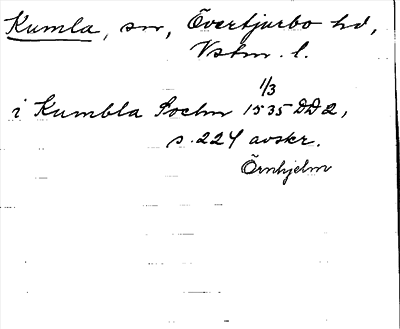 Kumla, sn, Övertjurbo hd,
Vstm. l.
1/3
i Kumbla Sochn 1535 DD2,
s. 224 avskr.
Örnhjelm